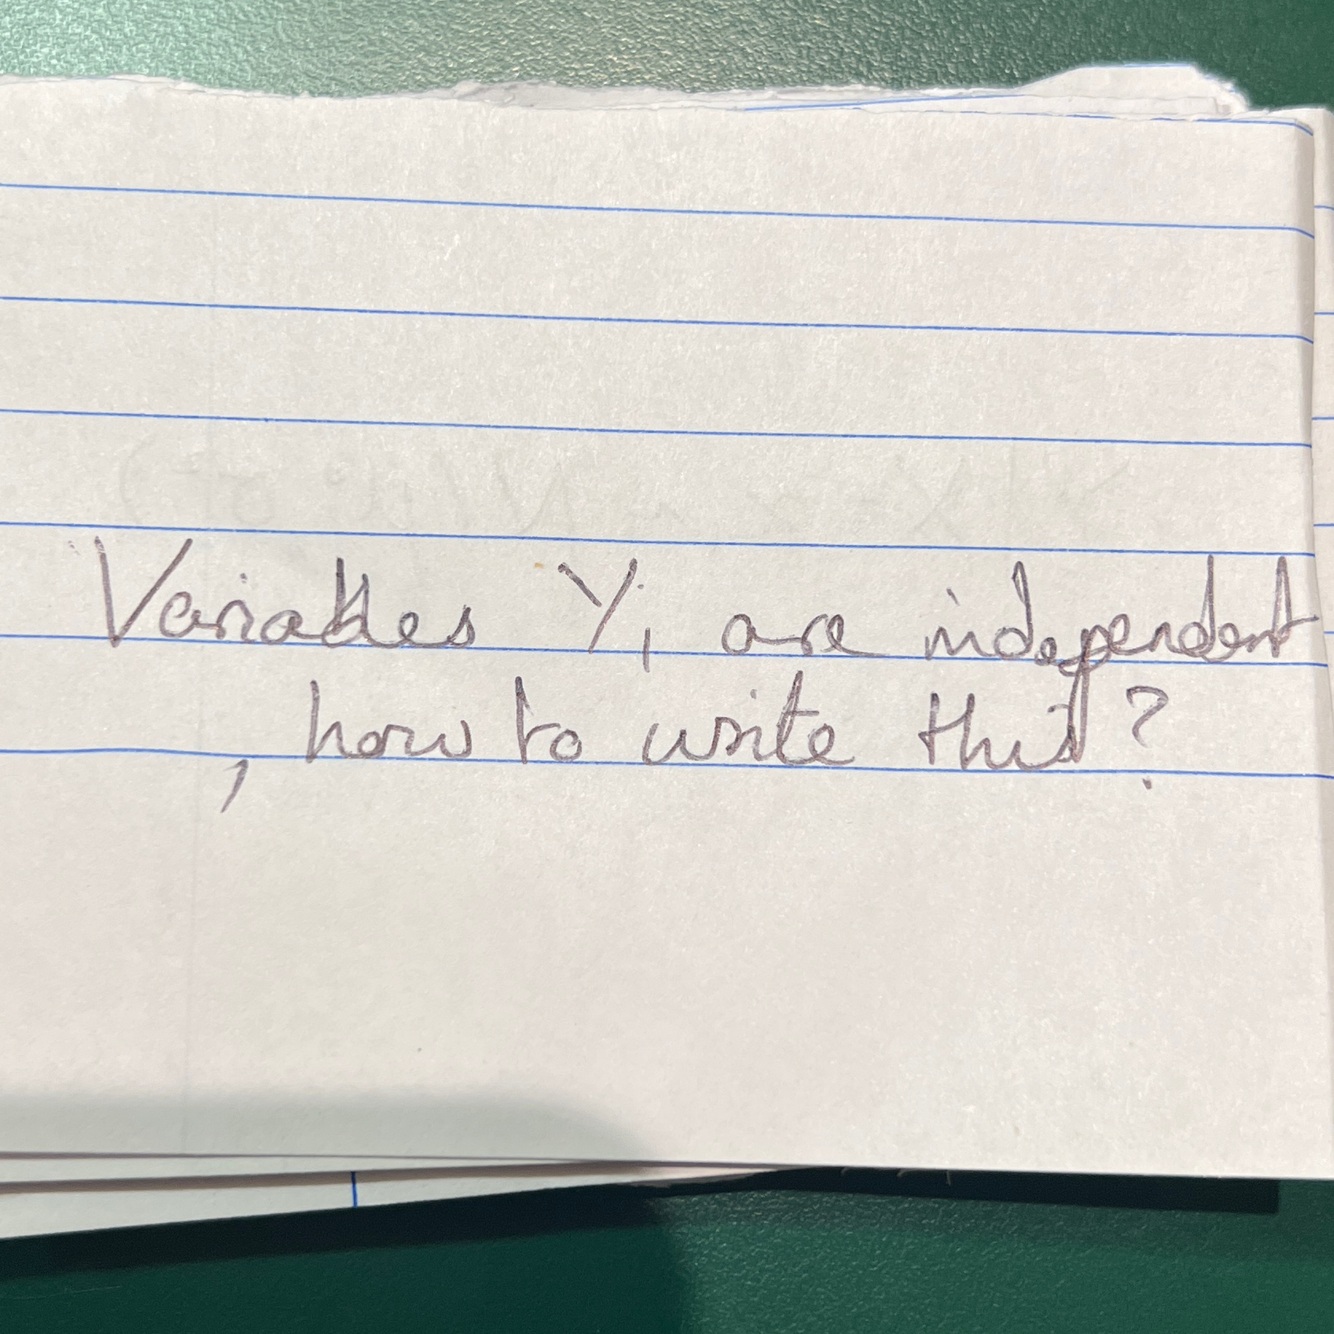 Variables Yi are independent
, how to write this?